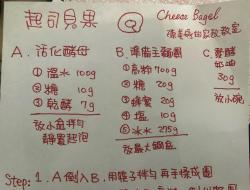 起司貝果 Q Cheese Bagel
A. 活化酵母
① 溫水 100g
② 糖 10g
③ 乾酵 7g
放小盆拌勻
靜置起泡
B. 準備主麵團
① 高粉 700g
② 糖 20g
③ 蜂蜜 20g
④ 鹽 10g
⑤ 冰水 275g
放最大鋼盆
C. 發酵
奶油
30g
放小碗
Step: 1. A倒入B. 用筷子拌勻 再手揉成團